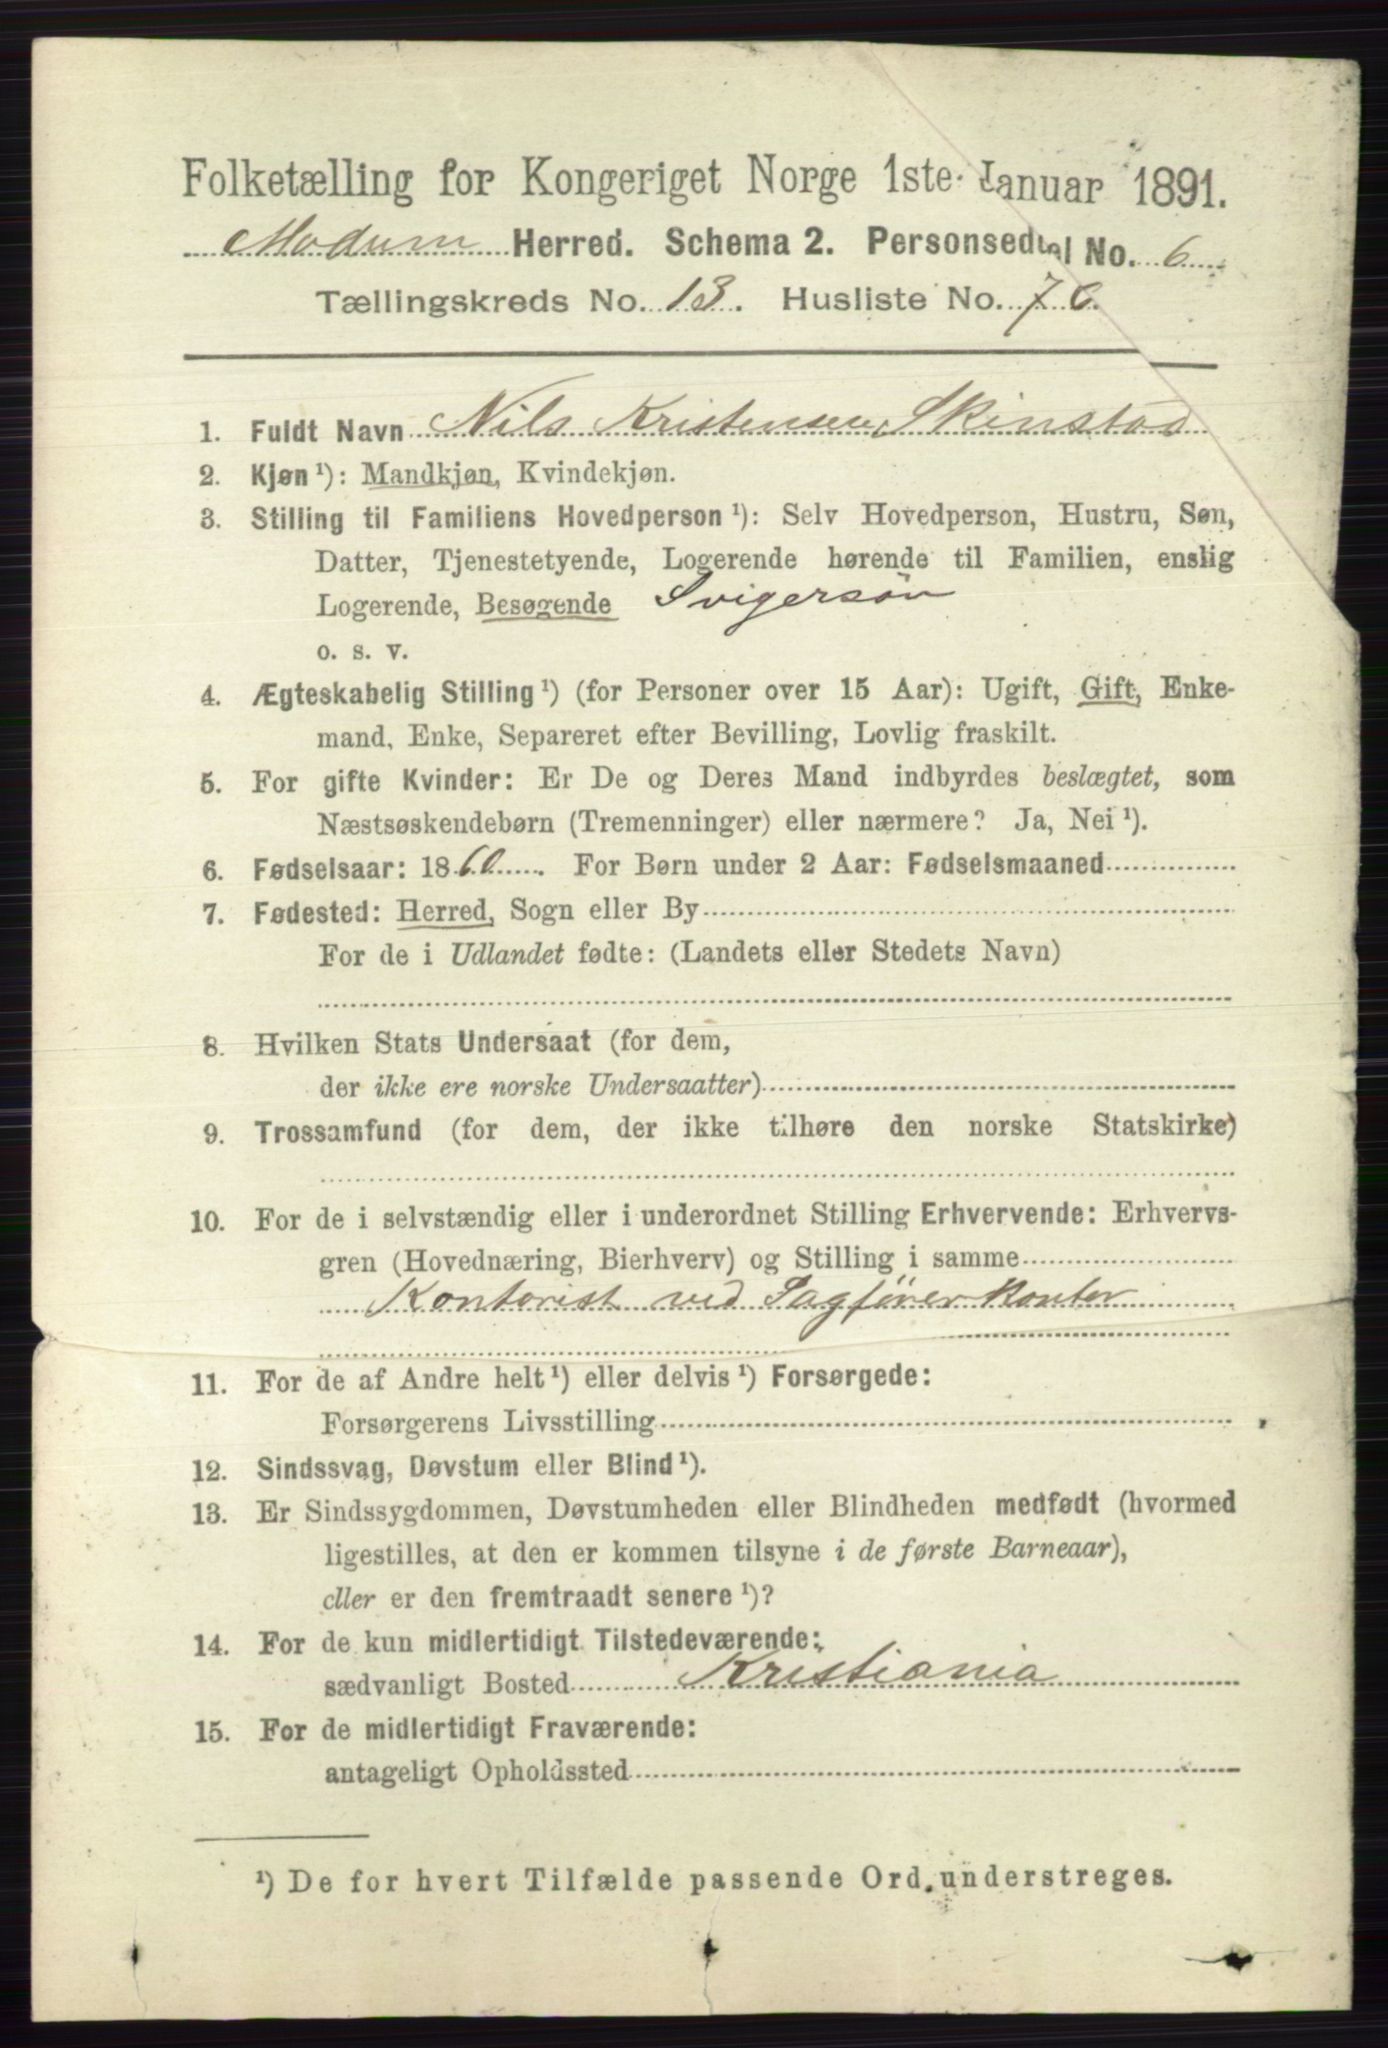 Folketælling for Kongeriget Norge 1ste Januar 1891.
Modum Herred. Schema 2. Personseddel No. 6
Tællingskreds No. 13. Husliste No. 76.
1. Fuldt Navn Nils Kristensen Skinstad
2. Kjøn ¹): Mandkjøn, Kvindekjøn.
3. Stilling til Familiens Hovedperson ¹): Selv Hovedperson, Hustru, Søn,
Datter, Tjenestetyende, Logerende hørende til Familien, enslig
Logerende, Besøgende Svigersøn
o. s. v.
4. Ægteskabelig Stilling ¹) (for Personer over 15 Aar): Ugift, Gift, Enke-
mand, Enke, Separeret efter Bevilling, Lovlig fraskilt.
5. For gifte Kvinder: Er De og Deres Mand indbyrdes beslægtet, som
Næstsøskendebørn (Tremenninger) eller nærmere? Ja, Nei ¹).
6. Fødselsaar: 1860. For Børn under 2 Aar: Fødselsmaaned
7. Fødested: Herred, Sogn eller By
For de i Udlandet fødte: (Landets eller Stedets Navn)
8. Hvilken Stats Undersaat (for dem,
der ikke ere norske Undersaatter)
9. Trossamfund (for dem, der ikke tilhøre den norske Statskirke)
10. For de i selvstændig eller i underordnet Stilling Erhvervende: Erhvervs-
gren (Hovednæring, Bierhverv) og Stilling i samme
Kontorist ved Sagførerkontor
11. For de af Andre helt ¹) eller delvis ¹) Forsørgede:
Forsørgerens Livsstilling
12. Sindssvag, Døvstum eller Blind ¹).
13. Er Sindssygdommen, Døvstumheden eller Blindheden medfødt (hvormed
ligestilles, at den er kommen tilsyne i de første Barneaar),
eller er den fremtraadt senere ¹)?
14. For de kun midlertidigt Tilstedeværende:
sædvanligt Bosted Kristiania
15. For de midlertidigt Fraværende:
antageligt Opholdssted
¹) De for hvert Tilfælde passende Ord understreges.